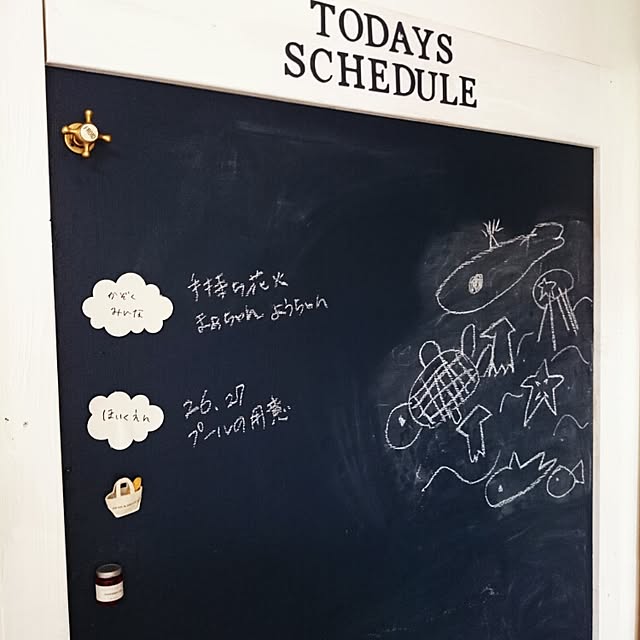 TODAYS
SCHEDULE
かぞく
みんな
手持ち花火
まぁちゃん ようちゃん
ほいくえん
26、27
プールの用意